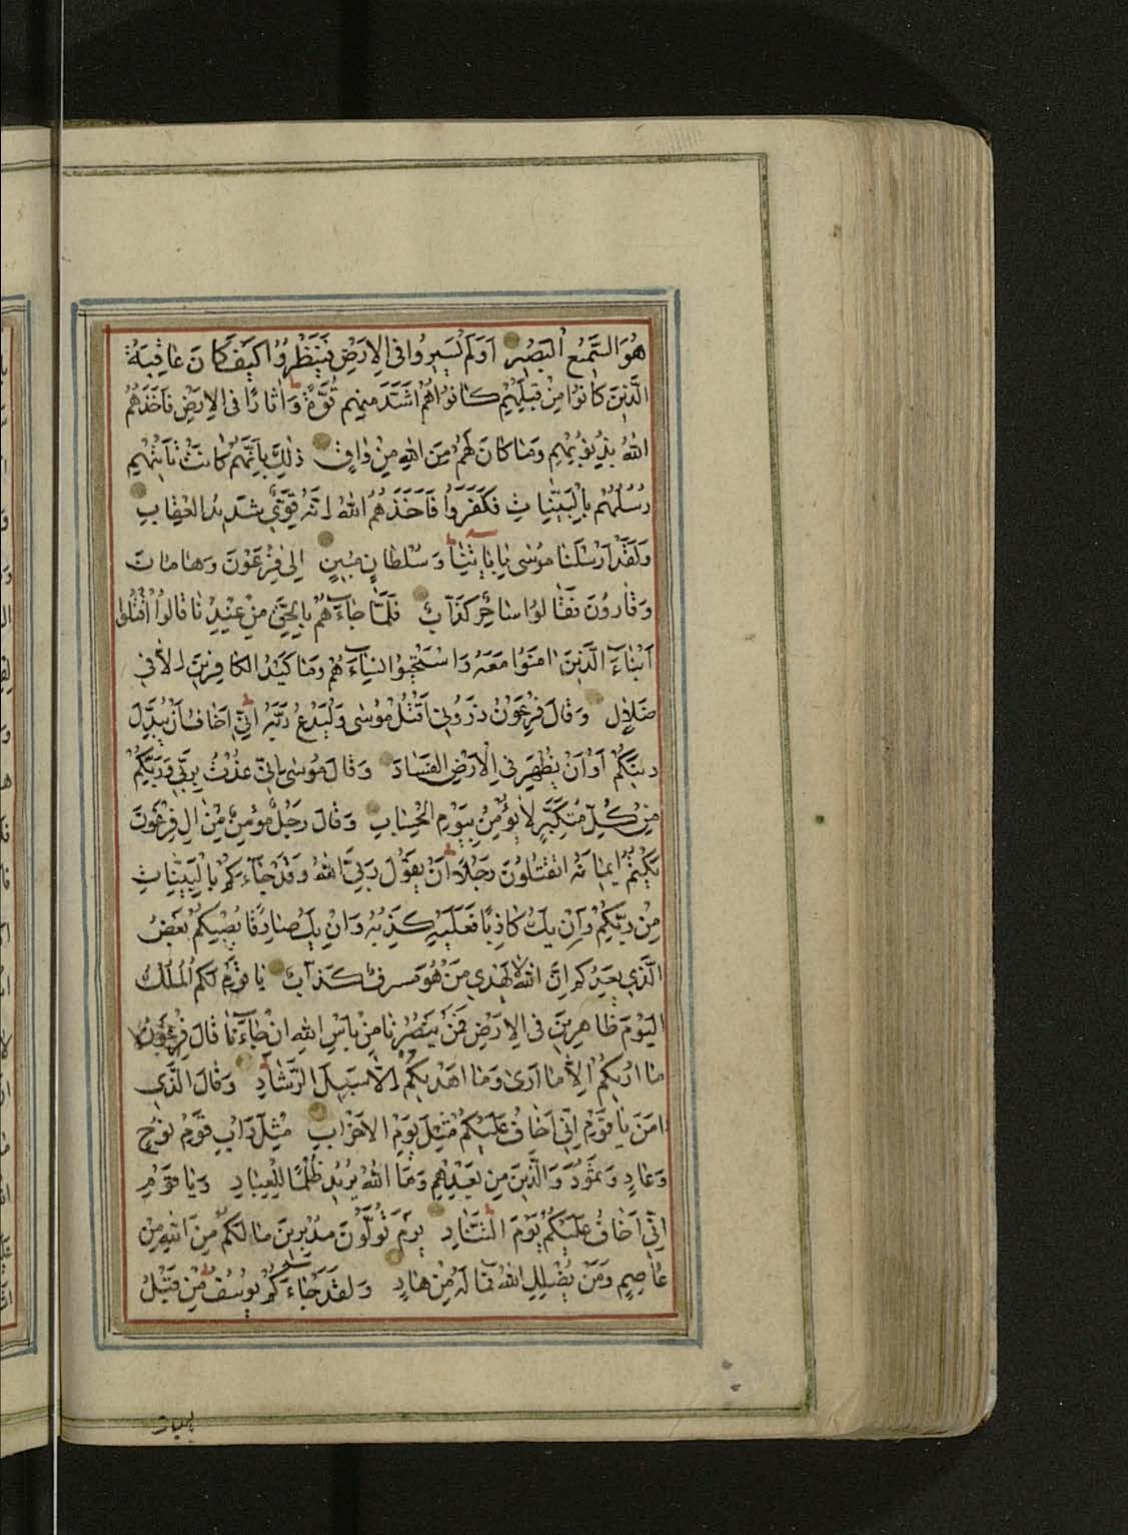 هُوَ السَّمِيعُ الْبَصِيرُ اَوَلَمْ يَسِيرُوا فِى الْاَرْضِ فَيَنْظُرُوا كَيْفَ كَانَ عَاقِبَةُ
الَّذِينَ كَانُوا مِنْ قَبْلِهِمْ كَانُوا هُمْ اَشَدَّ مِنْهُمْ قُوَّةً وَاٰثَارًا فِى الْاَرْضِ فَاَخَذَهُمُ
اللهُ بِذُنُوبِهِمْ وَمَا كَانَ لَهُمْ مِنَ اللهِ مِنْ وَاقٍ ذٰلِكَ بِاَنَّهُمْ كَانَتْ تَاْتِيهِمْ
رُسُلُهُمْ بِالْبَيِّنَاتِ فَكَفَرُوا فَاَخَذَهُمُ اللهُ اِنَّهُ قَوِيٌّ شَدِيدُ الْعِقَابِ
وَلَقَدْ اَرْسَلْنَا مُوسٰى بِاٰيَاتِنَا وَسُلْطَانٍ مُبِينٍ اِلٰى فِرْعَوْنَ وَهَامَانَ
وَقَارُونَ فَقَالُوا سَاحِرٌ كَذَّابٌ فَلَمَّا جَاءَهُمْ بِالْحَقِّ مِنْ عِنْدِنَا قَالُوا اقْتُلُوا
اَبْنَاءَ الَّذِينَ اٰمَنُوا مَعَهُ وَاسْتَحْيُوا نِسَاءَهُمْ وَمَا كَيْدُ الْكَافِرِينَ اِلَّا فِى
ضَلَالٍ وَقَالَ فِرْعَوْنُ ذَرُونِى اَقْتُلْ مُوسٰى وَلْيَدْعُ رَبَّهُ اِنِّى اَخَافُ اَنْ يُبَدِّلَ
دِينَكُمْ اَوْ اَنْ يُظْهِرَ فِى الْاَرْضِ الْفَسَادَ وَقَالَ مُوسٰى اِنِّى عُذْتُ بِرَبِّى وَرَبِّكُمْ
مِنْ كُلِّ مُتَكَبِّرٍ لَا يُؤْمِنُ بِيَوْمِ الْحِسَابِ وَقَالَ رَجُلٌ مُؤْمِنٌ مِنْ اٰلِ فِرْعَوْنَ
يَكْتُمُ اِيمَانَهُ اَتَقْتُلُونَ رَجُلًا اَنْ يَقُولَ رَبِّىَ اللهُ وَقَدْ جَاءَكُمْ بِالْبَيِّنَاتِ
مِنْ رَبِّكُمْ وَاِنْ يَكُ كَاذِبًا فَعَلَيْهِ كَذِبُهُ وَاِنْ يَكُ صَادِقًا يُصِبْكُمْ بَعْضُ
الَّذِى يَعِدُكُمْ اِنَّ اللهَ لَا يَهْدِى مَنْ هُوَ مُسْرِفٌ كَذَّابٌ يَا قَوْمِ لَكُمُ الْمُلْكُ
الْيَوْمَ ظَاهِرِينَ فِى الْاَرْضِ فَمَنْ يَنْصُرُنَا مِنْ بَاْسِ اللهِ اِنْ جَاءَنَا قَالَ فِرْعَوْنُ
مَا اُرِيكُمْ اِلَّا مَا اَرٰى وَمَا اَهْدِيكُمْ اِلَّا سَبِيلَ الرَّشَادِ وَقَالَ الَّذِى
اٰمَنَ يَا قَوْمِ اِنِّى اَخَافُ عَلَيْكُمْ مِثْلَ يَوْمِ الْاَحْزَابِ مِثْلَ دَاْبِ قَوْمِ نُوحٍ
وَعَادٍ وَثَمُودَ وَالَّذِينَ مِنْ بَعْدِهِمْ وَمَا اللهُ يُرِيدُ ظُلْمًا لِلْعِبَادِ وَيَا قَوْمِ
اِنِّى اَخَافُ عَلَيْكُمْ يَوْمَ التَّنَادِ يَوْمَ تُوَلُّونَ مُدْبِرِينَ مَا لَكُمْ مِنَ اللهِ مِنْ
عَاصِمٍ وَمَنْ يُضْلِلِ اللهُ فَمَا لَهُ مِنْ هَادٍ وَلَقَدْ جَاءَكُمْ يُوسُفُ مِنْ قَبْلُ